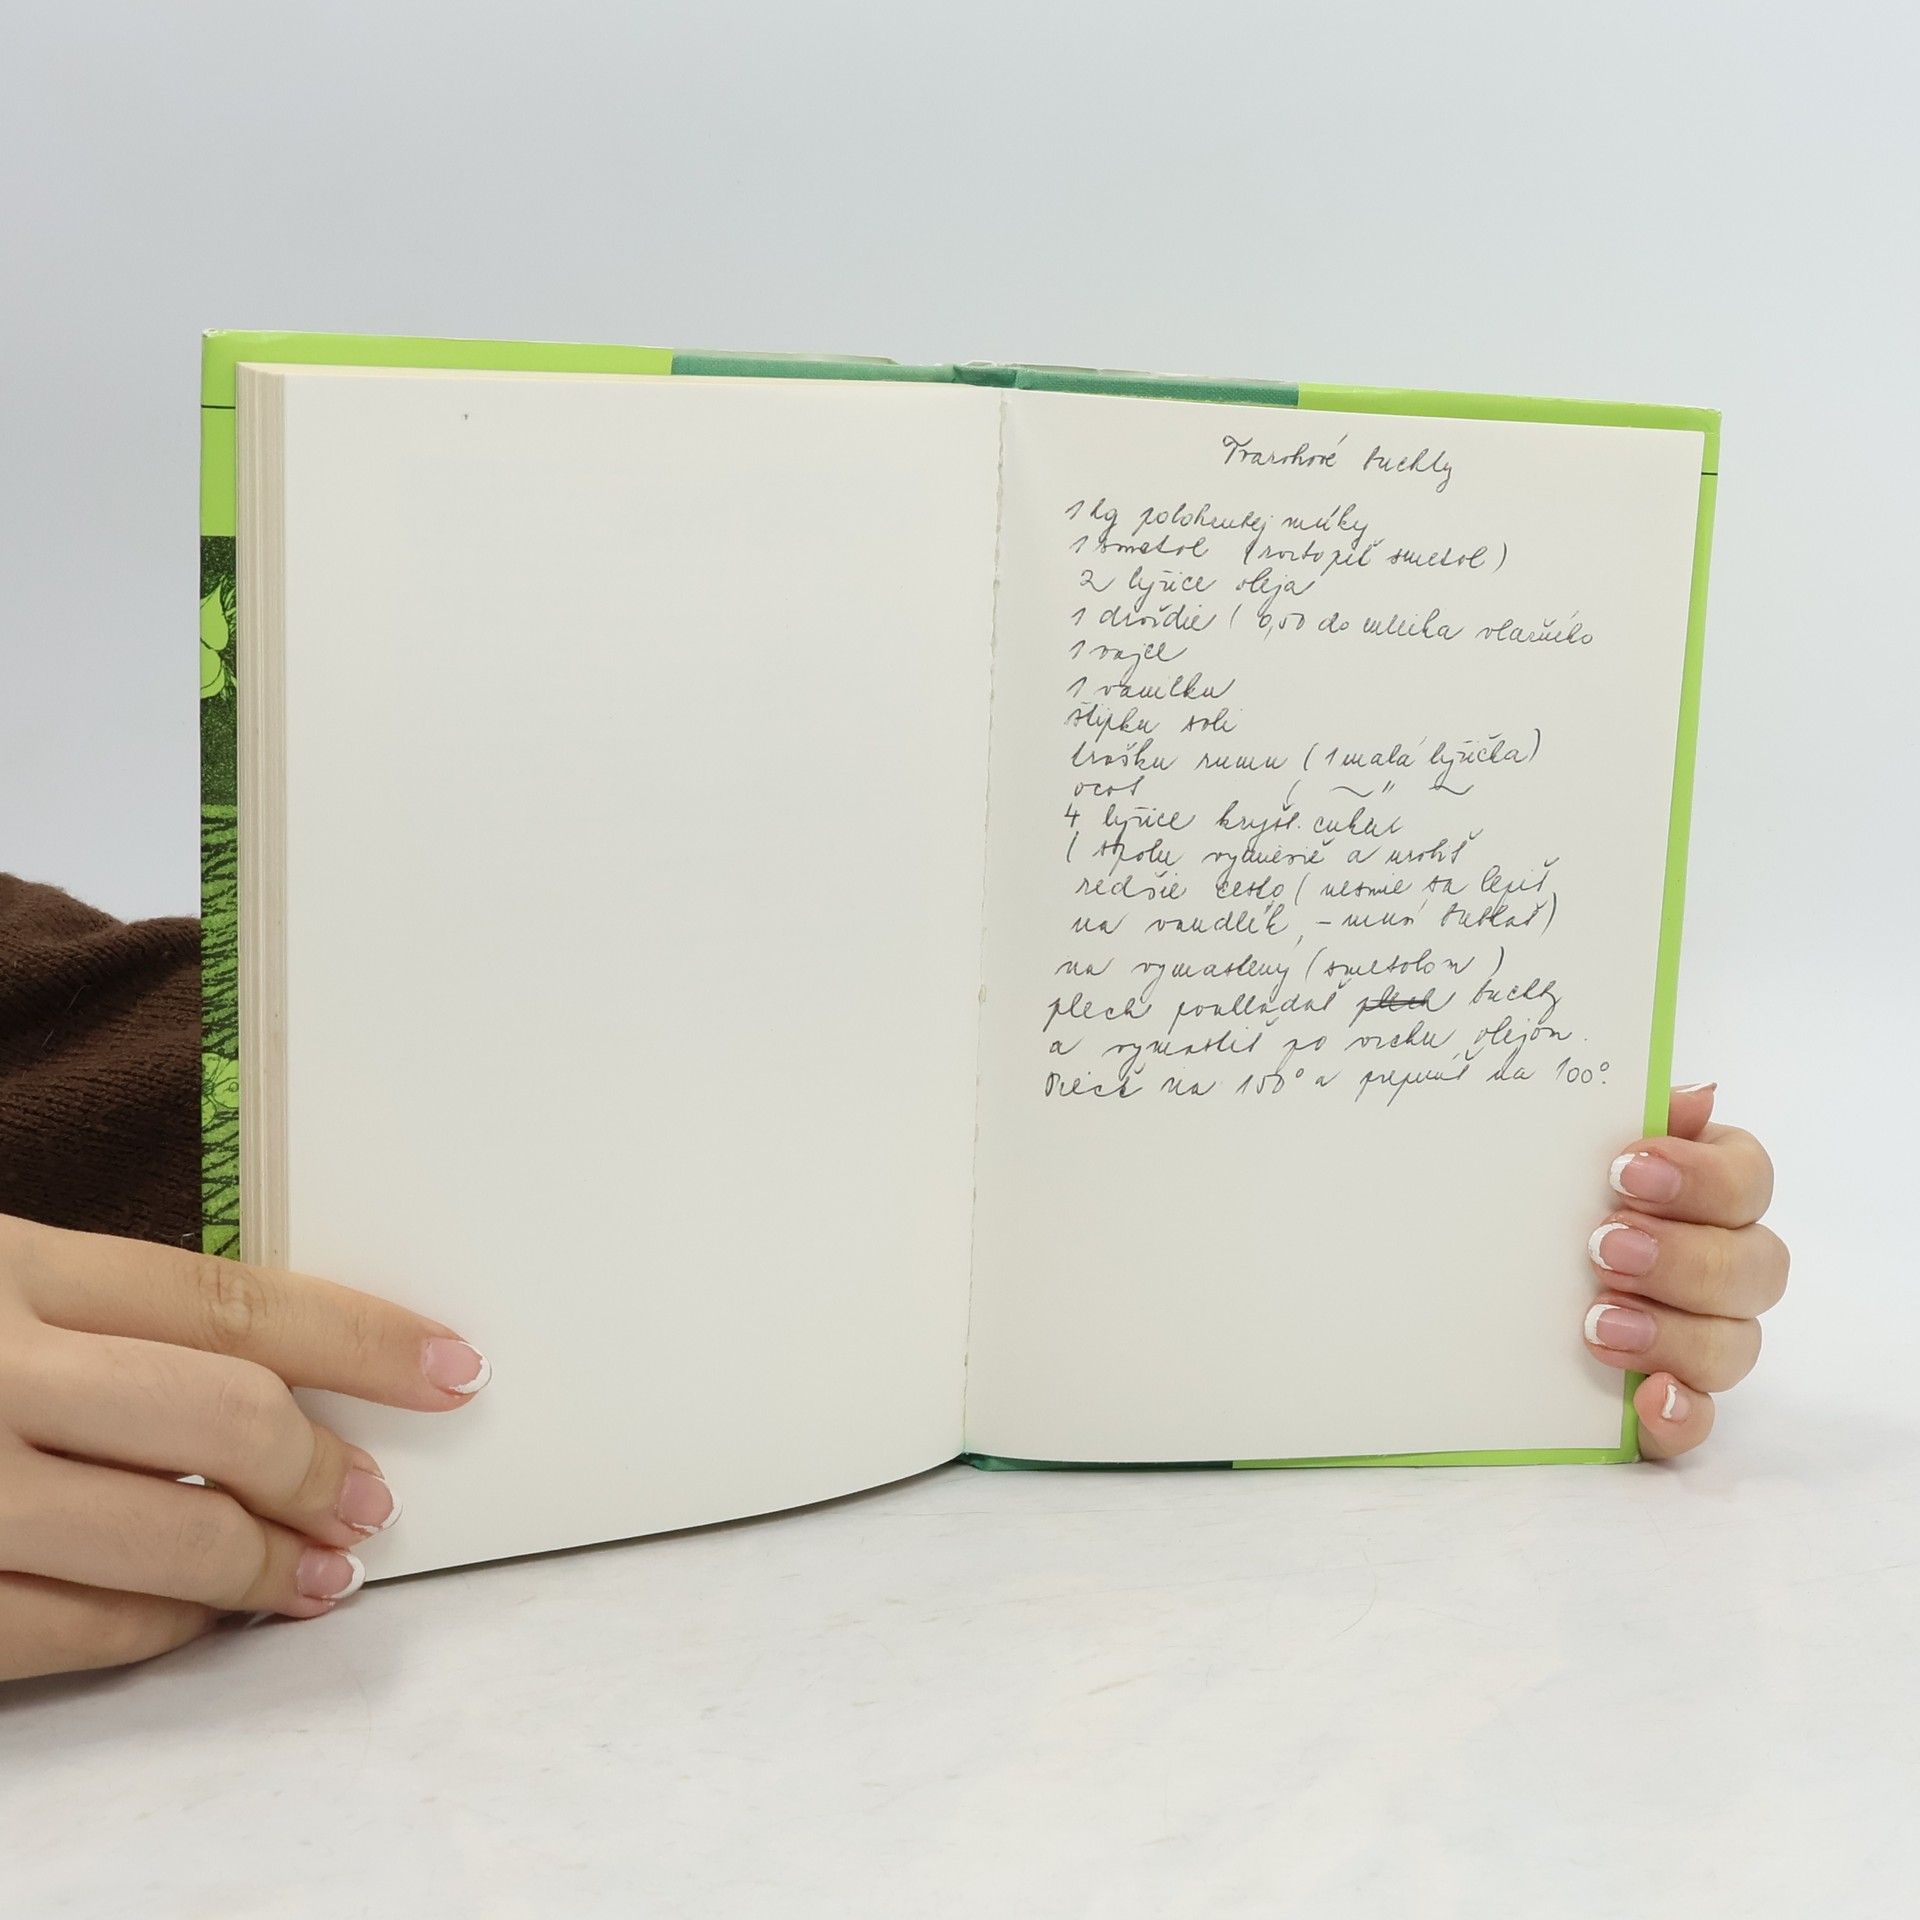 Tvarohové buchty
1 kg polohrubej múky
1 smetol (roztopiť smetol)
2 lyžice oleja
1 droždie ( 0,50 do mlieka vlažného
1 vajce
1 vanilku
štipku soli
trošku rumu (1 malá lyžička)
ocot ( ~ " ~
4 lyžice kryšt. cukru
( spolu vymiesiť a urobiť
redšie cesto ( nesmie sa lepiť
na vandlík, – musí )
na vymastený (smetolom)
plech poukladať plech buchty
a vymastiť po vrchu olejom.
Piecť na 150° a prepnúť na 100°.